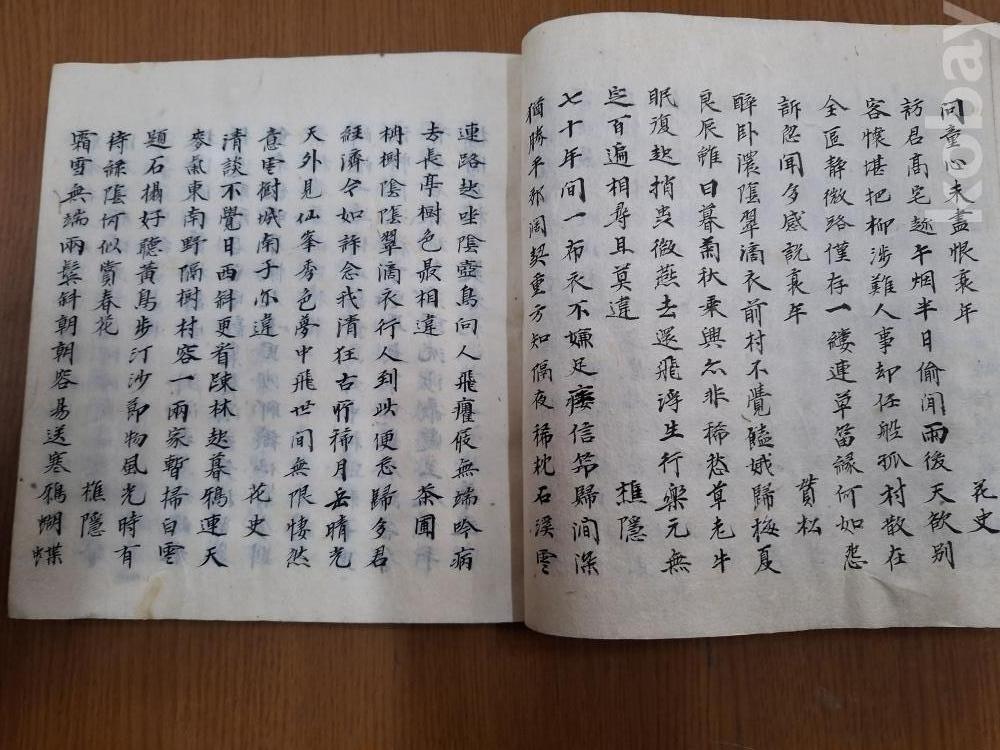 問童心未盡恨衰年 花史
訪君高宅趁午烟半日偷閒雨後天欲別
客懷堪把柳涉難人事却任船孤村散在
全區靜微路僅存一縷連草笛緣何如怨
訴忽聞多感說衰年 貰松
醉臥濃陰翠滴衣前村不覺饁娥歸梅夏
良辰雖日暮菊秋乘興亦非稀愁草老牛
眠復起捎虫微燕去還飛浮生行樂元無
定百遍相尋且莫違 樵隱
七十年間一布衣不嫌足痿信筇歸澗深
猶勝平郊闊契重方知隔夜稀枕石溪雲
連路起坐陰壺鳥向人飛癯傁無端吟病
去長亭樹色最相違 茶圃
枏樹陰陰翠滴衣行人到此便忘歸多君
經濟今如許念我清狂古所稀月岳晴光
天外見仙峯秀色夢中飛世間無限悽然
意雪樹城南子亦違 花史
清談不覺日西斜更看踈林起暮鴉連天
麥氣東南野隔樹村容一兩家暫掃白雲
題石搨好聽黃鳥步汀沙節物風光時有
待綠陰何似賞春花 樵隱
霜雪無端兩鬓斜朝朝容易送寒鴉蝴蝶
kobay